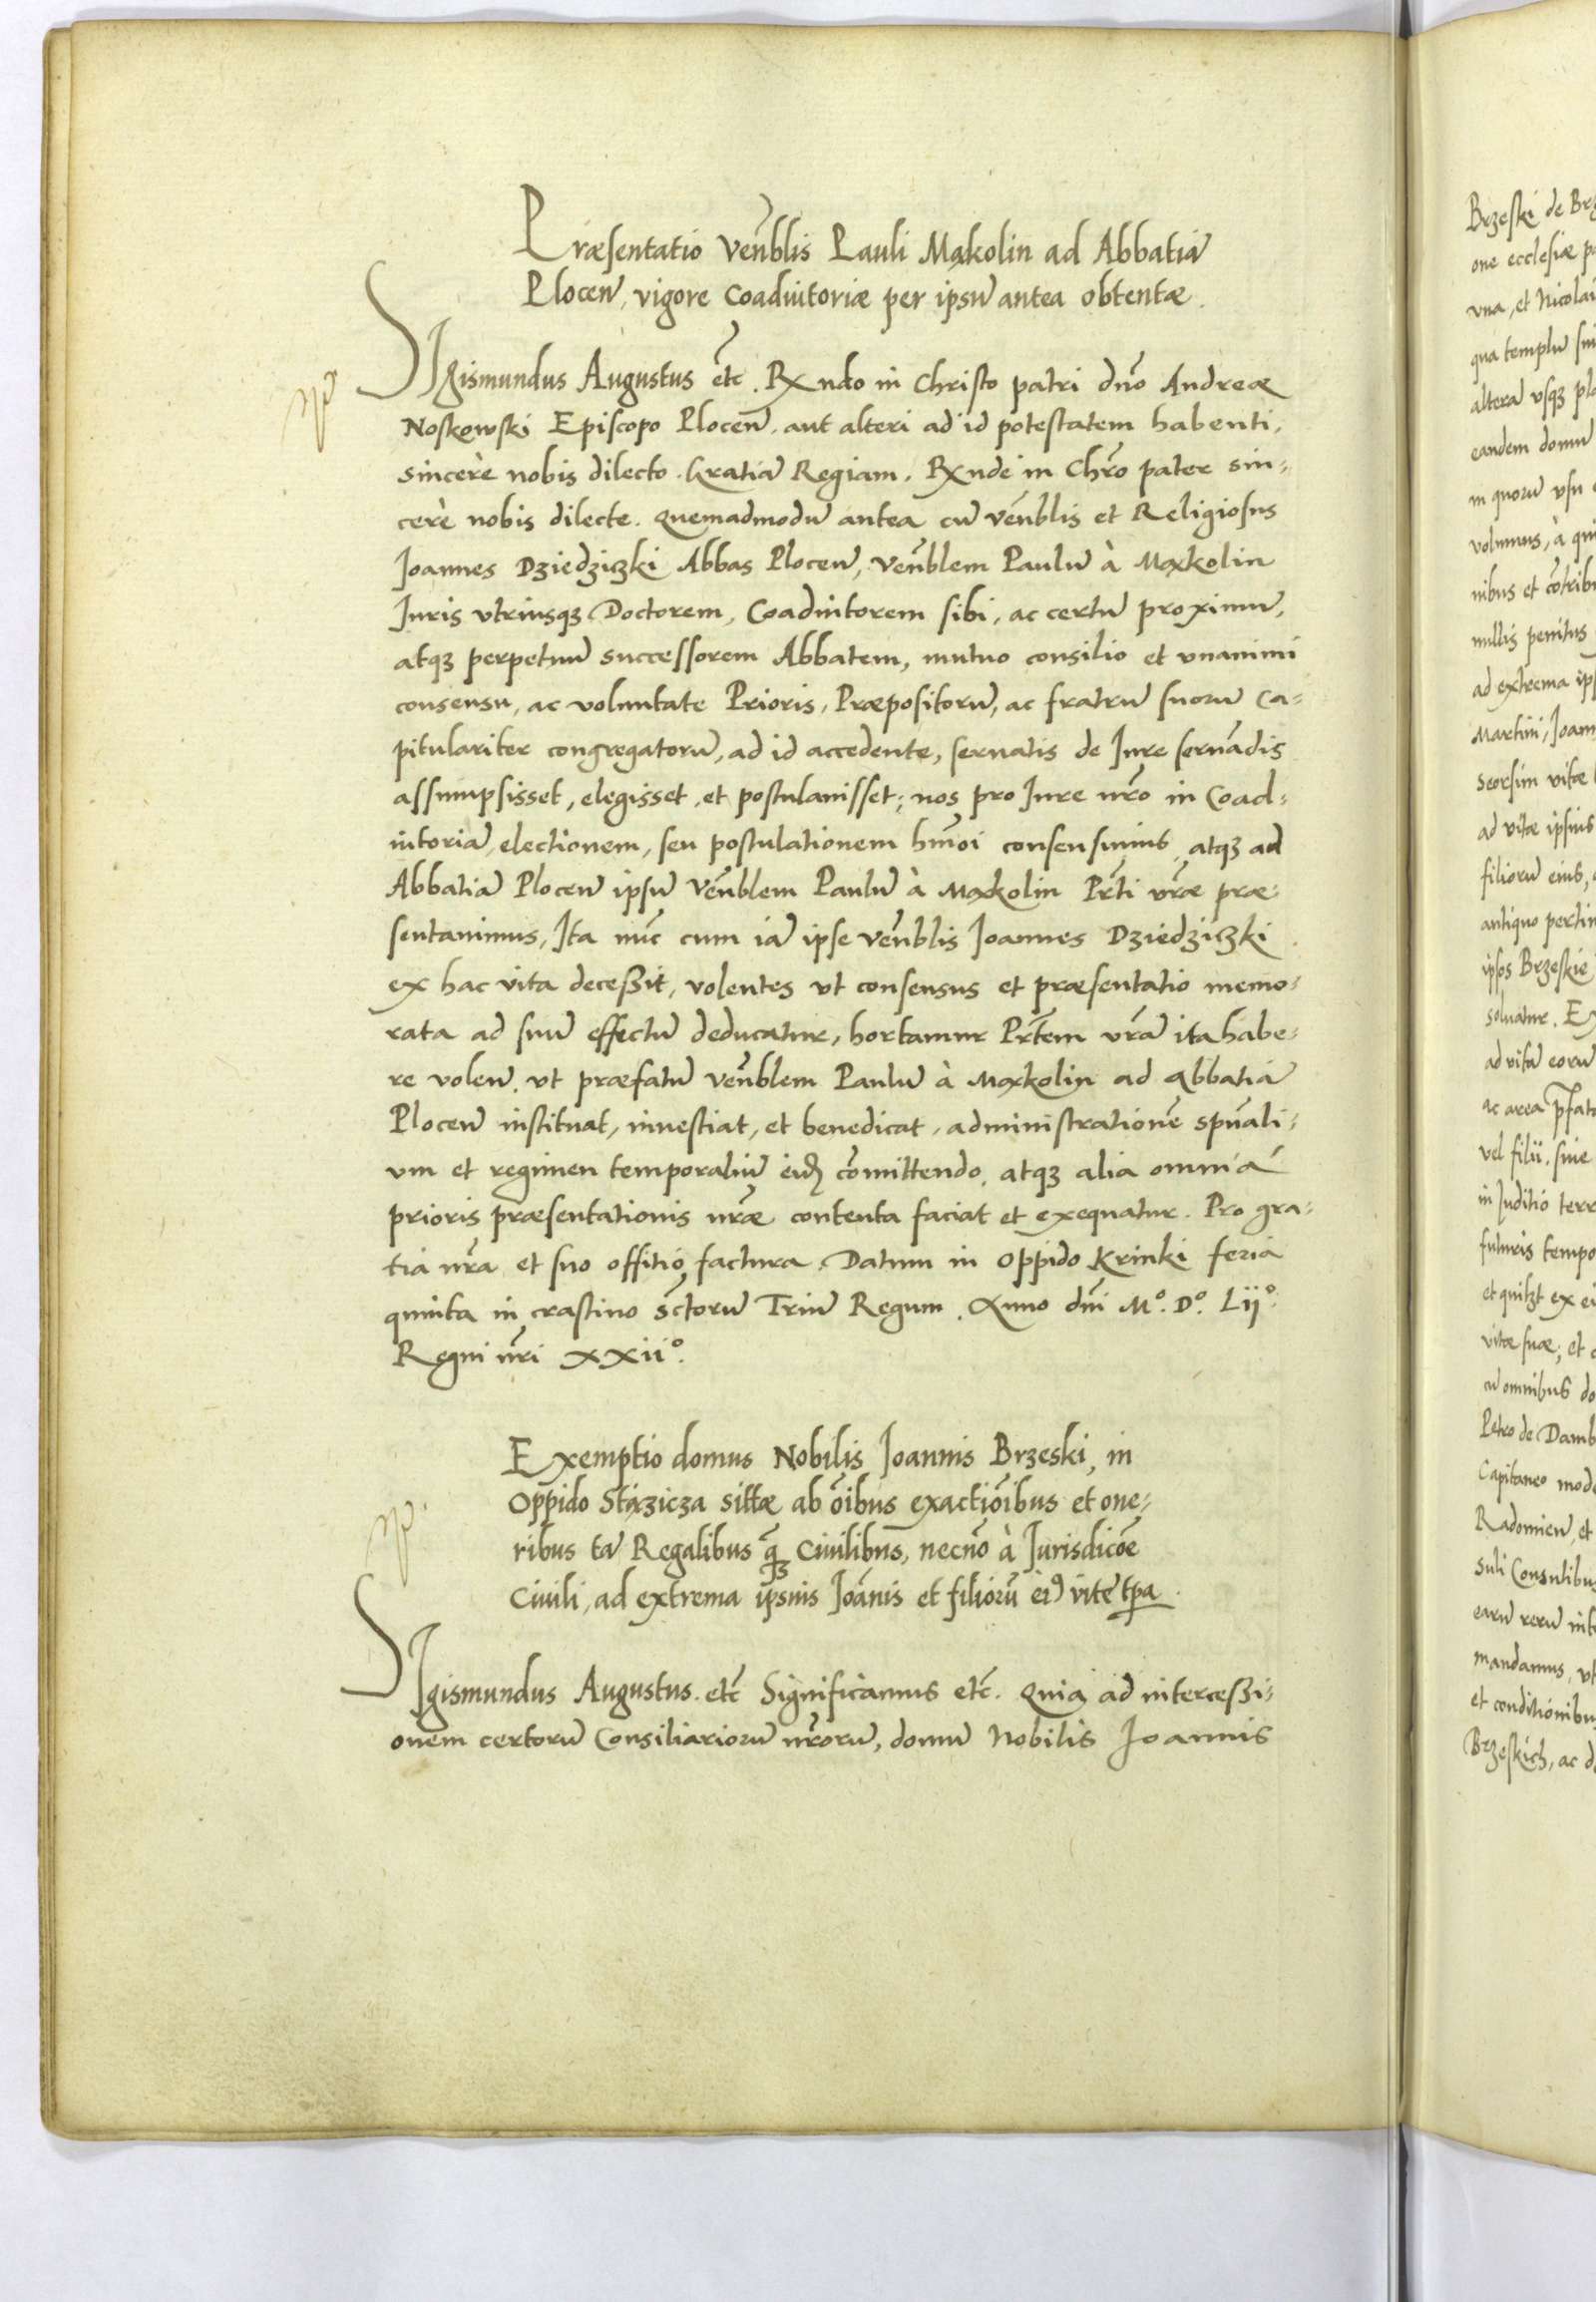 Præsentatio Venⁿblis Pauli Mąkolin ad Abbatiā
Plocen̄, vigore Coadiutoriæ per ipsū antea obtentæ.
SIgismundus Augustus etc̄. Rx̄ndo in Christo patri dnō Andreæ
Noskowski Episcopo Plocen̄. aut alteri ad id potestatem habenti,
sincerè nobis dilecto. Gratiā Regiam. Rx̄nde in Chrō pater sin-
cerè nobis dilecte. Quemadmodū antea cū ven̄blis et Religiosus
Joannes Dziedziczki Abbas Plocen̄, Ven̄blem Paulū à Mąkolin
Juris vtriusqz Doctorem, Coadiutorem sibi, ac certū proximū,
atqz perpetuū successorem Abbatem, mutuo consilio et vnanimi
consensu, ac voluntate Prioris, Præpositorū, ac fratrū suorū Ca-
pitulariter congregatorū, ad id accedente, seruatis de Jure seruādis
assumpsisset, elegisset, et postulauisset; nos pro Jure nrō in Coad-
iutoriā, electionem, seu postulationem hmōi consensimus, atqz ad
Abbatiā Plocen̄ ipsū Ven̄blem Paulū à Mąkolin Prt̄i vrǣ præ-
sentauimus, Ita nūc cum iā ipse ven̄blis Joannes Dziedziczki
ex hac vita deceßit, volentes vt consensus et præsentatio memo-
rata ad suū effectū deducatur, hortamur Prt̄em vrā ita habe-
re volen̄. vt præfatū ven̄blem Paulū à Mąkolin ad Abbatiā
Plocen̄ instituat, inuestiat, et benedicat, administrationē spūali-
um et regimen temporaliū eid̄ cōmittendo, atqz alia omnia
prioris præsentationis nrǣ contenta faciat et exequatur. Pro gra-
tia nrā et suo offitio factura. Datum in Oppido Krinki feria
quinta in crastino Sctōrū Triū Regum. Anno dnī Mº. Dº. Liiº.
Regni nrī XXiiº.
Exemptio domus Nobilis Joannis Brzeski, in
Oppido Stązicza sittæ ab ōibus exactiōibus et one-
ribus tā Regalibus qz̄ Ciuilibus, necnō à Jurisdicōe
Ciuili, ad extrema ipsius Joānis et filiorū ei9 vite tpa.
SIgismundus Augustus. etc̄ Significamus etc̄. Quia ad interceßi-
onem certorū Consiliariorū nrōrū, domū Nobilis Joannis
Brzeski de Brz
one ecclesiæ p
vna, et Nicolai
qua templū
alterā vsqz
eandem domū
in quorū vsu
volumus, à
nibus et cōtrib
nullis penitus
ad extrema
Martini, Joan
seorsim vitæ
ad vitæ ipsius
filiorū eius,
antiquo
ipsos Brzeskie
soluatur. Ex
ad vitā eorū
ac area
vel filii. siue
in Juditio terr
futuris tempo
et ex
vitæ suæ; et
cū omnibus do
Petro de Damb
Capitaneo mod
Radomien̄, et
suli Consulibus
earū rerū
mandamus, vt
et conditionibu
Brzeskich, ac